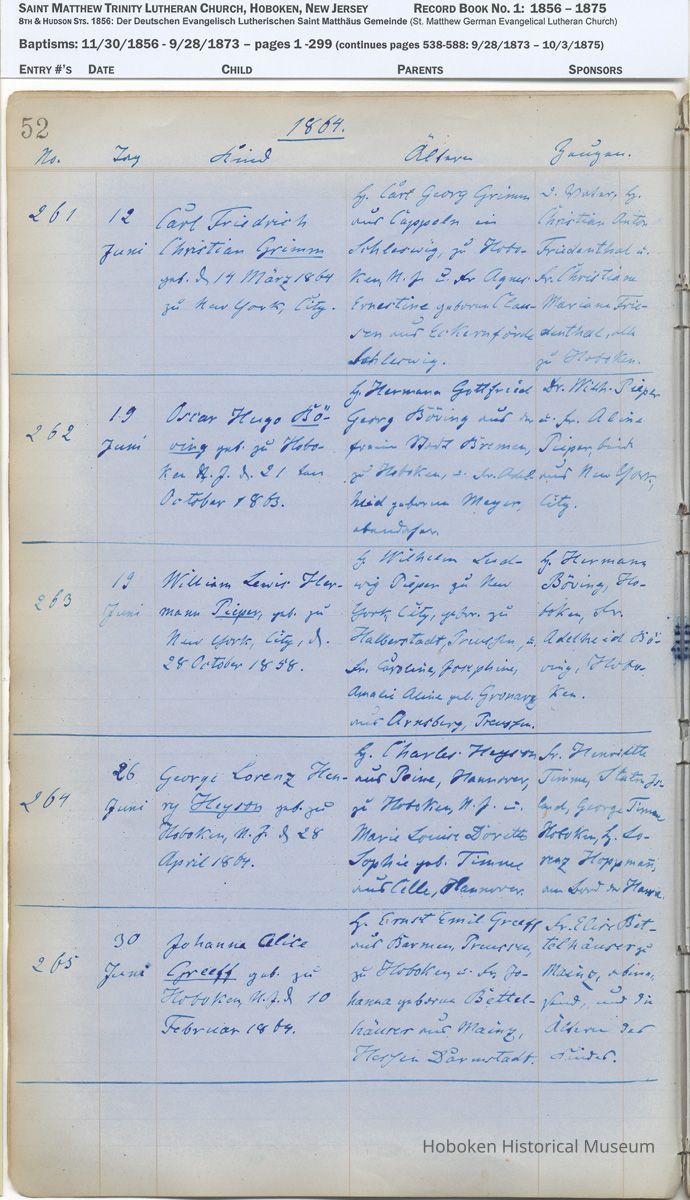 SAINT MATTHEW TRINITY LUTHERAN CHURCH, HOBOKEN, NEW JERSEY RECORD BOOK NO. 1: 1856 – 1875
8TH & HUDSON STS. 1856: Der Deutschen Evangelisch Lutherischen Saint Matthäus Gemeinde (St. Matthew German Evangelical Lutheran Church)
Baptisms: 11/30/1856 - 9/28/1873 – pages 1 -299 (continues pages 538-588: 9/28/1873 – 10/3/1875)
ENTRY #'S DATE CHILD PARENTS SPONSORS
52
1864.
No. Tag Kind Ältern Zeugen.
261
12
Juni
Carl Friedrich
Christian Grimm
geb. d. 14 März 1864
zu New York, City.
H. Carl Georg Grimm
aus Cappeln in
Schleswig, zu Hobo-
ken, N. J. u. Fr. Agnes
Ernestine geborene Clau-
sen aus Eckernförde
Schleswig.
D. Vater, H.
Christian Anton
Friedenthal u.
Fr. Christiane
Mariane Frie-
denthal, alle
zu Hoboken.
262
19
Juni
Oscar Hugo Bö-
ving geb. zu Hobo-
ken N. J. d. 21 ten
October 1863.
H. Hermann Gottfried
Georg Böving aus der
freien Stadt Bremen,
zu Hoboken, u. Fr. Adel-
heid geborene Meyer,
ebendaher.
Dr. Wilh. Pieper
u. Fr. Aline
Pieper, beide
aus New York,
City.
263
19
Juni
William Lewis Her-
mann Pieper, geb. zu
New York, City, d.
28 October 1858.
H. Wilhelm Lud-
wig Pieper zu New
York, City, gebr. zu
Halberstadt, Preussen, u.
Fr. Caroline, Josephine,
Amalie Aline geb. Gronarz
aus Arnsberg, Preussen.
H. Hermann
Böving, Ho-
boken, Fr.
Adelheid Bö-
ving, Hobo-
ken.
264
26
Juni
George Lorenz Hen-
ry Heyson geb. zu
Hoboken, N. J. d. 28
April 1864.
H. Charles Heyson
aus Peine, Hannover,
zu Hoboken, N. J. u.
Marie Louise Dorette
Sophie geb. Timme
aus Celle, Hannover.
Fr. Henriette
Timme, Staten Is-
land, George Timme
Hoboken, H. Lo-
renz Hoppmann,
am Bord der
265
30
Juni
Johanna Alice
Greeff geb. zu
Hoboken, N. J. d. 10
Februar 1864.
H. Ernst Emil Greeff
aus Barmen, Preussen,
zu Hoboken u. Fr. Jo-
hanna geborene Bettel-
häuser aus Mainz,
Hessen Darmstadt.
Fr. Elise Bet-
telhäuser zu
Mainz, abwe-
send, und die
Ältern des
Kindes.
Hoboken Historical Museum